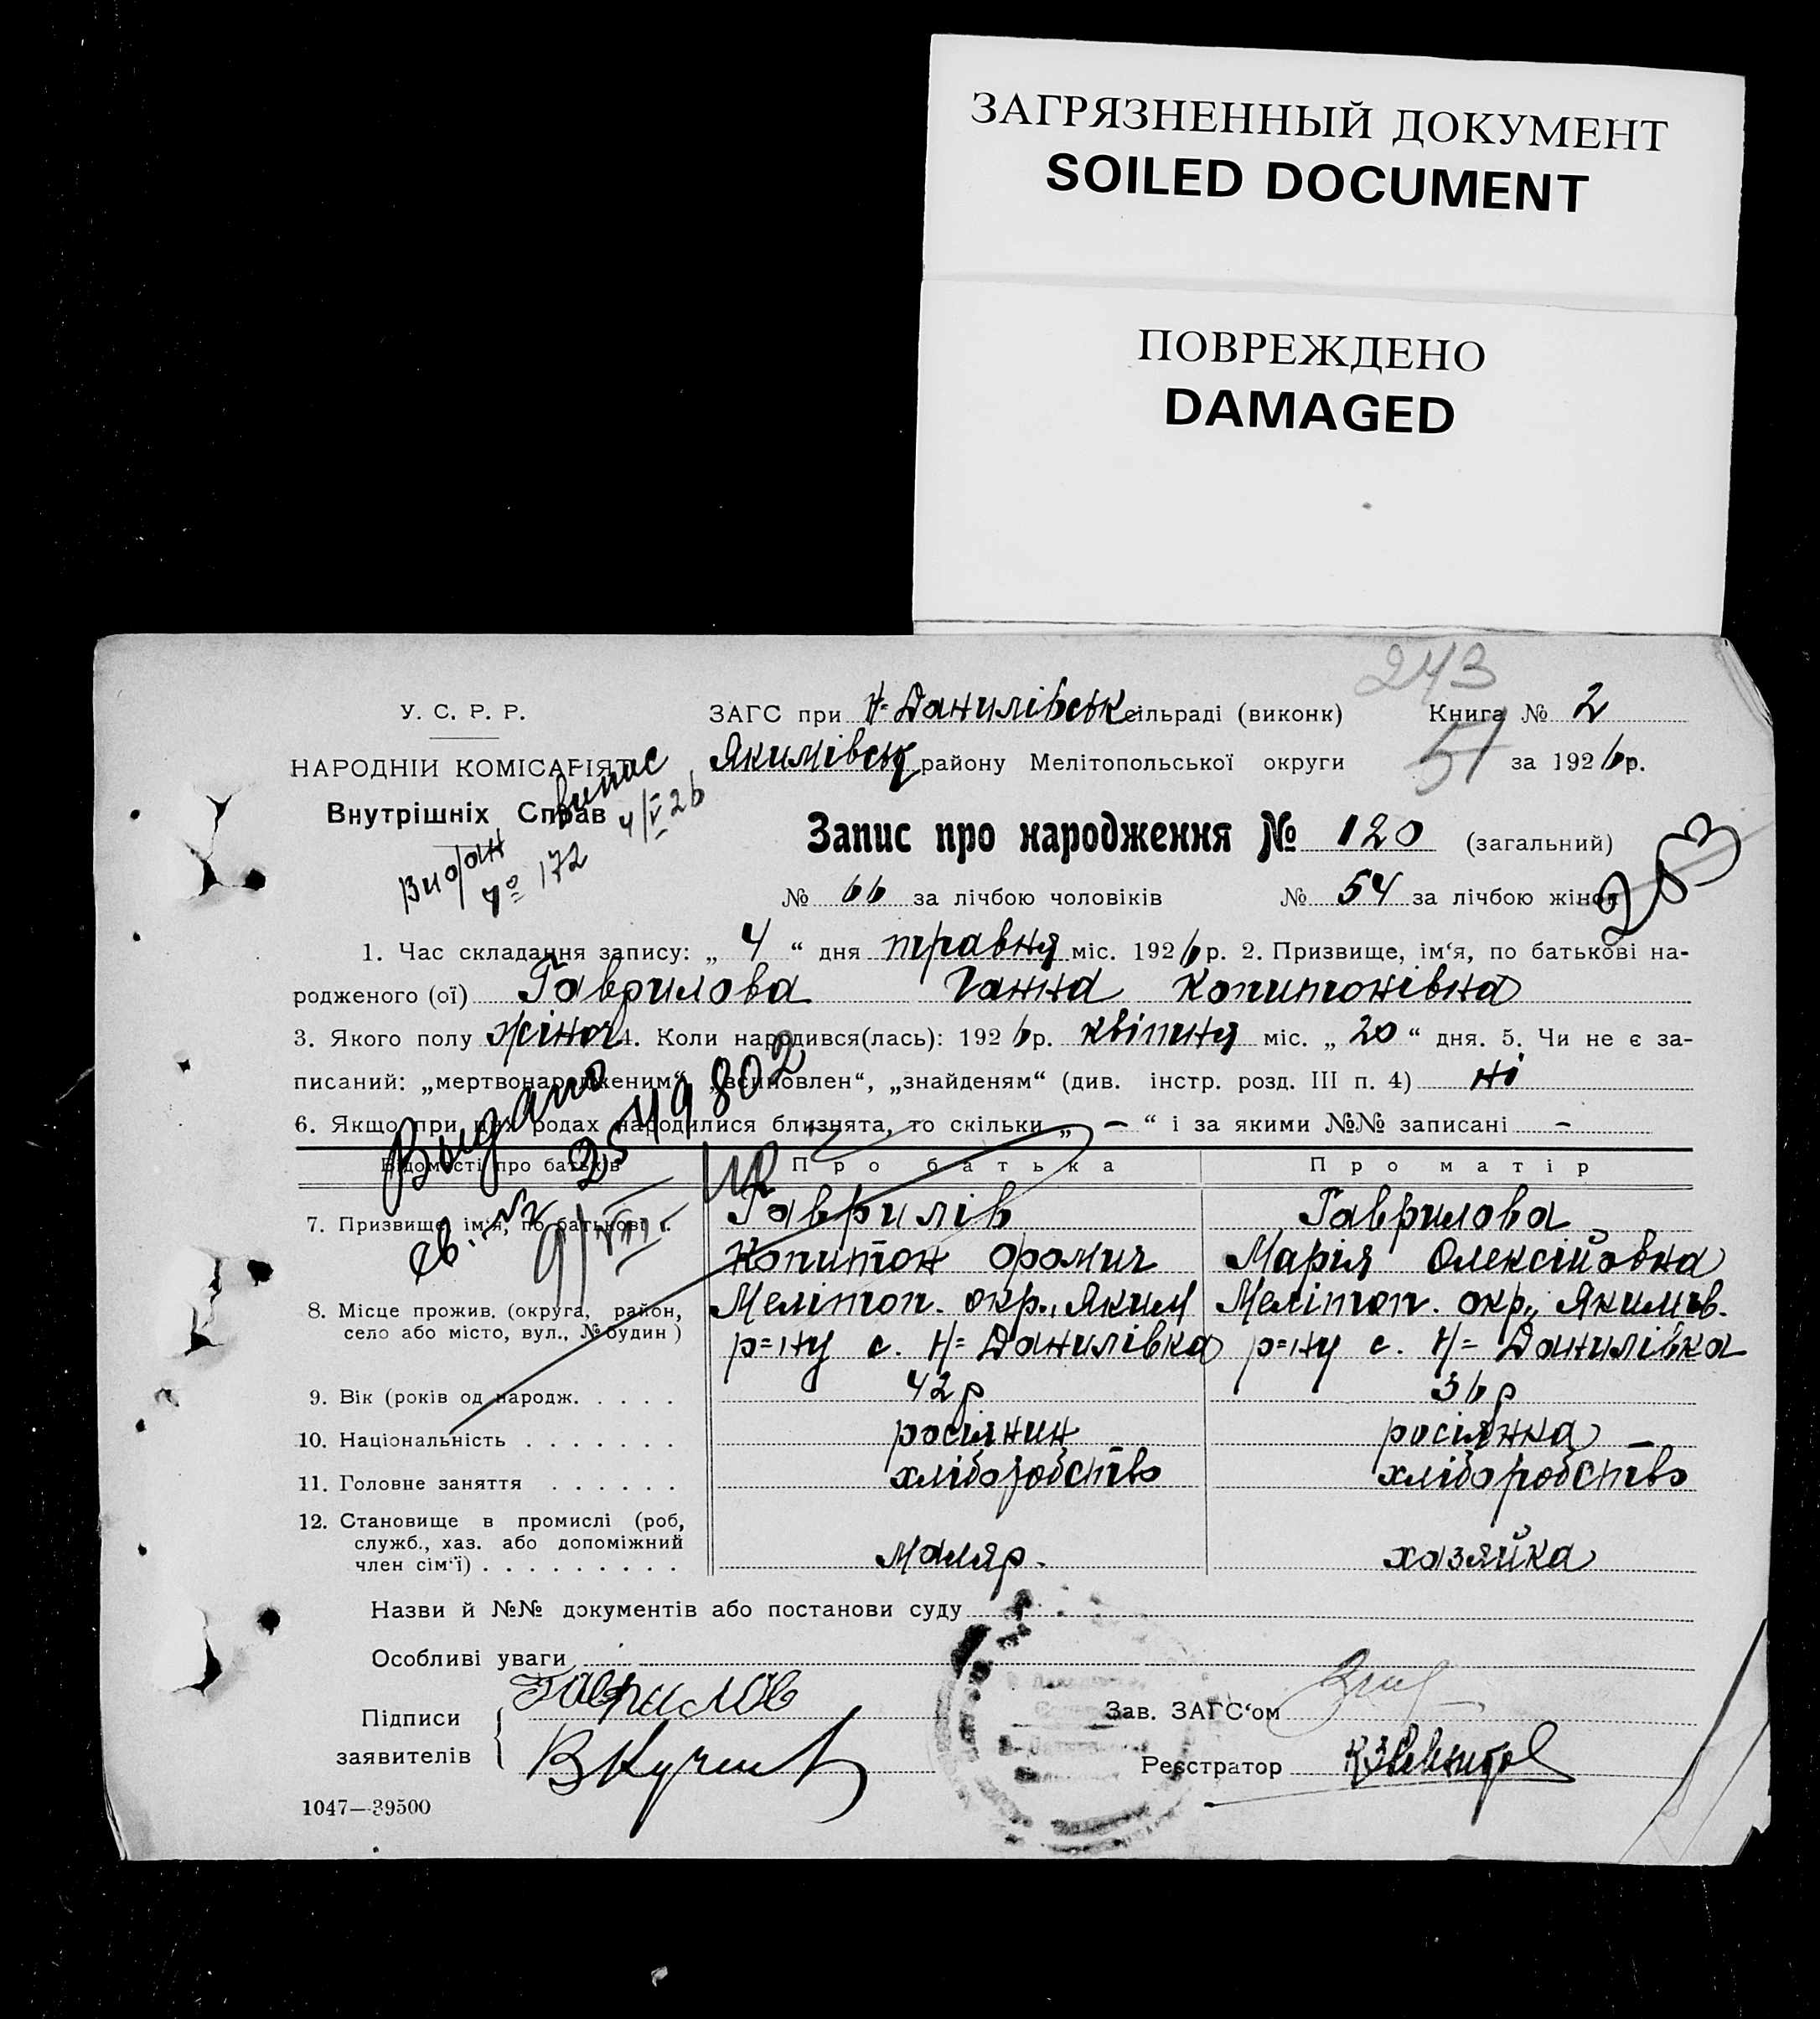 ЗАГРЯЗНЕННЫЙ ДОКУМЕНТ
SOILED DOCUMENT
ПОВРЕЖДЕНО
DAMAGED
243
У. С. Р. Р.
ЗАГС при Н-Данилівськ сільраді (виконк) Книга № 2
НАРОДНІЙ КОМІСАРІЯТ
Якимівськ району Мелітопольської округи 51 за 1926р.
Внутрішніх Справ
Видан випис
№ 172 4/V 26
Запис про народження № 120 (загальний)
№ 66 за лічбою чоловіків № 54 за лічбою жінок
203
1. Час складання запису: „ 4 “ дня травня міс. 1926р. 2. Призвище, ім‘я, по батькові на-
родженого (ої) Гаврилова Ганна Копитонівна
3. Якого полу жіноч 4. Коли народився(лась): 1926р. квітня міс. „ 20 “ дня. 5. Чи не є за-
писаний: „мертвонародженим“, „всиновлен“, „знайденям“ (див. інстр. розд. III п. 4) ні
6. Якщо при цих родах народилися близнята, то скільки „ – “ і за якими №№ записані –
Выдано
св. № 2549802
9/VIII
Відомості про батьків Про батька Про матір
7. Призвище, ім‘я, по батькові Гаврилів Гаврилова
Копитон Фомич Марія Олексійовна
8. Місце прожив. (округа, район, Мелітоп. окр., Яким Мелітоп. окр., Якимів.
село або місто, вул., № будин) р=ну с. Н=Данилівка р=ну с. Н=Данилівка
9. Вік (років од народж. . . . . . 42 р 36 р
10. Національність . . . . . . . росіянин росіянка –
11. Головне заняття . . . . . . хліборобство хліборобство
12. Становище в промислі (роб,
служб., хаз. або допоміжний
член сім‘ї) . . . . . . . . . маляр. хазяйка
Назви й №№ документів або постанови суду
Особливі уваги
Підписи Гаврилов Зав. ЗАГС‘ом
заявителів Реєстратор
1047—39500